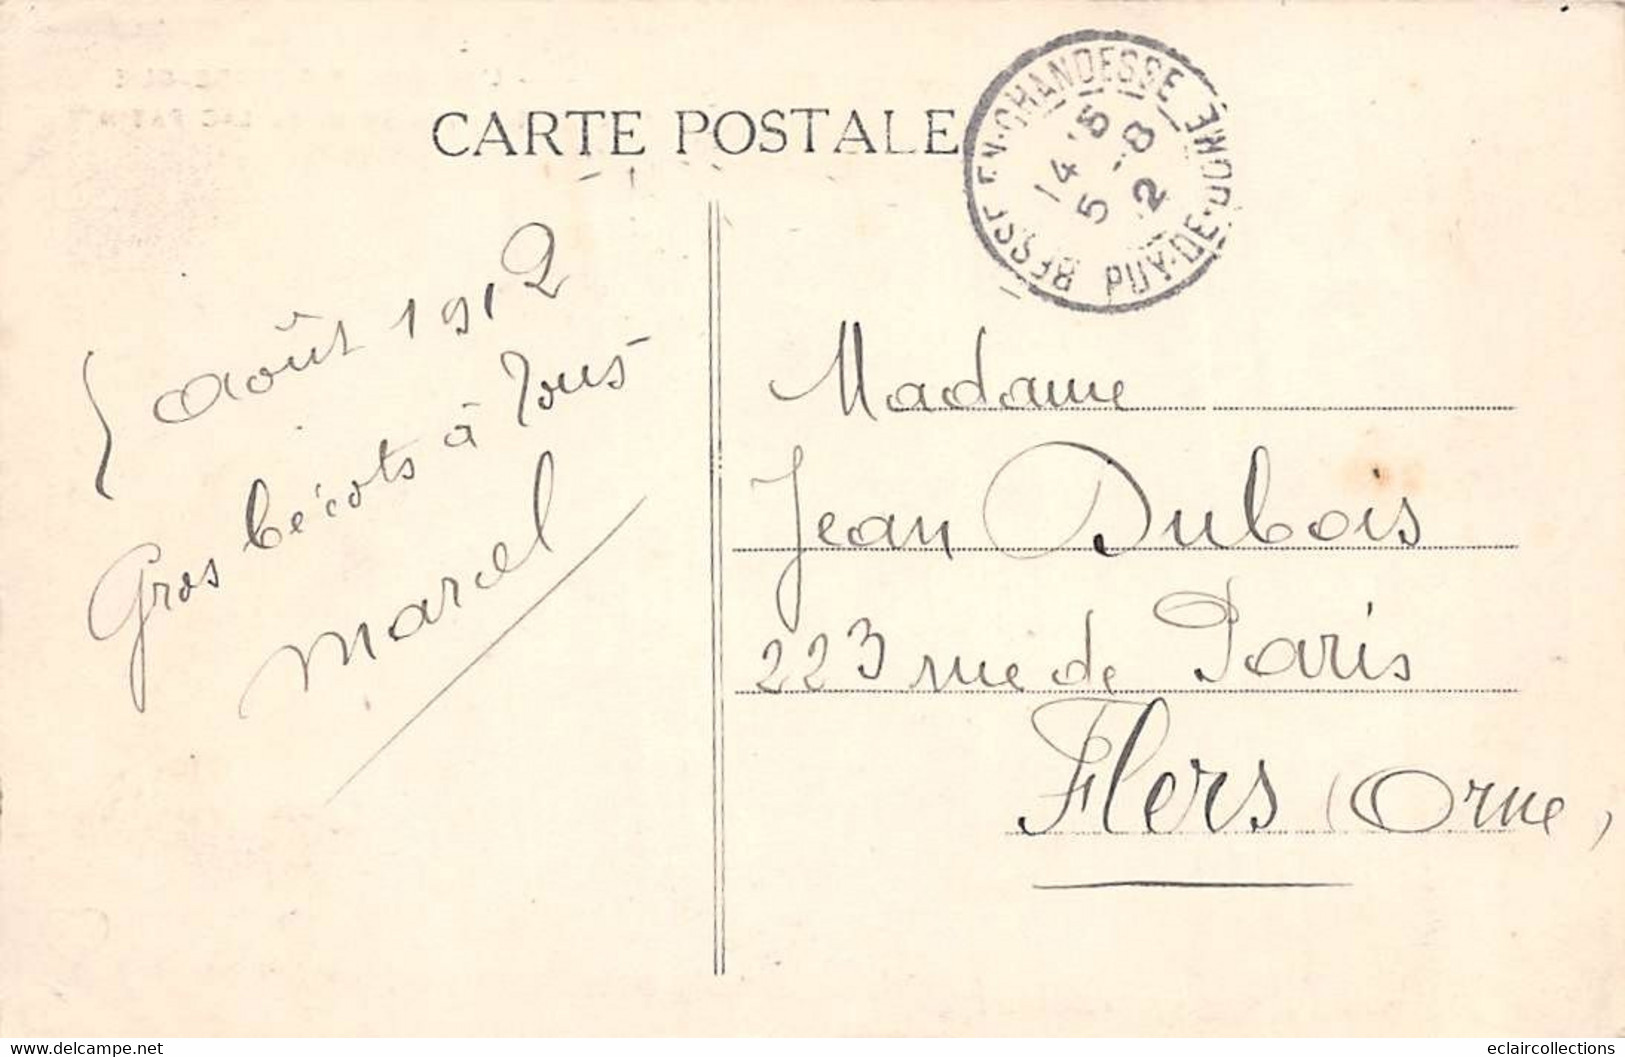 CARTE POSTALE
BESSE-EN-CHANDESSE PUY-DE-DOME
14 15
5 -8
12
5 août 1912
Gros bécots à Tous
Marcel
Madame
Jean Dubois
223 rue de Paris
Flers (Orne)
delcampe.net
eclaircollections